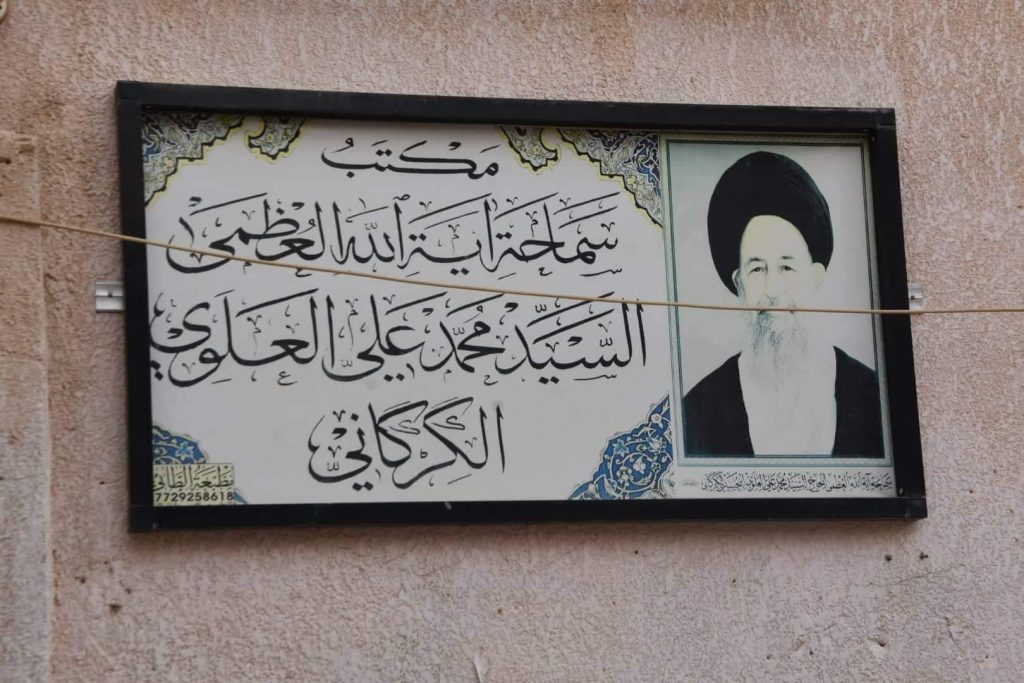 مَكتَبُ
سَمَاحَةِ اٰيَةِ اللهِ العُظمىٰ
السَّيِّد مُحَمَّد عَلِيّ العَلَوِيّ
الكَركَانيّ
مطبعة الطائي
7729258618
سماحة آية الله العظمى الحاج السيد محمد علي العلوي الحسيني الكركاني